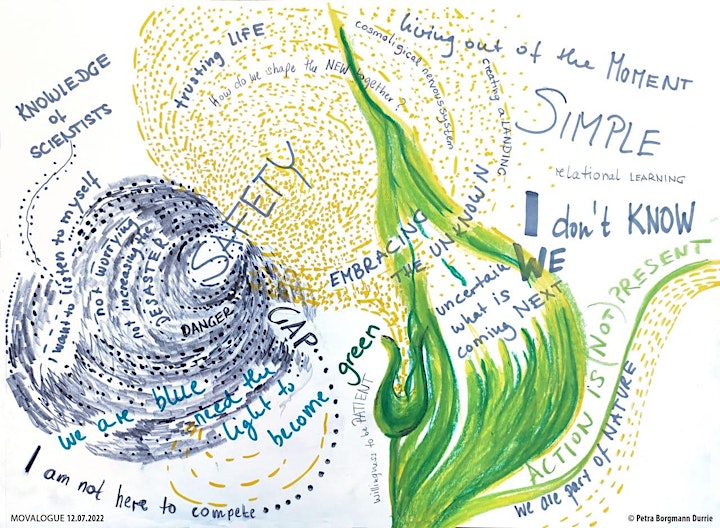 KNOWLEDGE
of
SCIENTISTS
trusting LIFE
How do we shape the NEW together?
cosmoligical nervoussystem
creating a LANDING
living out of the MOMENT
SIMPLE
relational LEARNING
I don't KNOW
WE
I want to listen to myself
not worrying
not increasing the
DESASTER
SAFETY
DANGER
GAP
EMBRACING
THE UNKNOWN
uncertain
what is
coming NEXT
we are blue
need the
light to
become green
I am not here to compete
willingness to be PATIENT
ACTION IS (NOT) PRESENT
we are part of NATURE
MOVALOGUE 12.07.2022
© Petra Borgmann Durrie